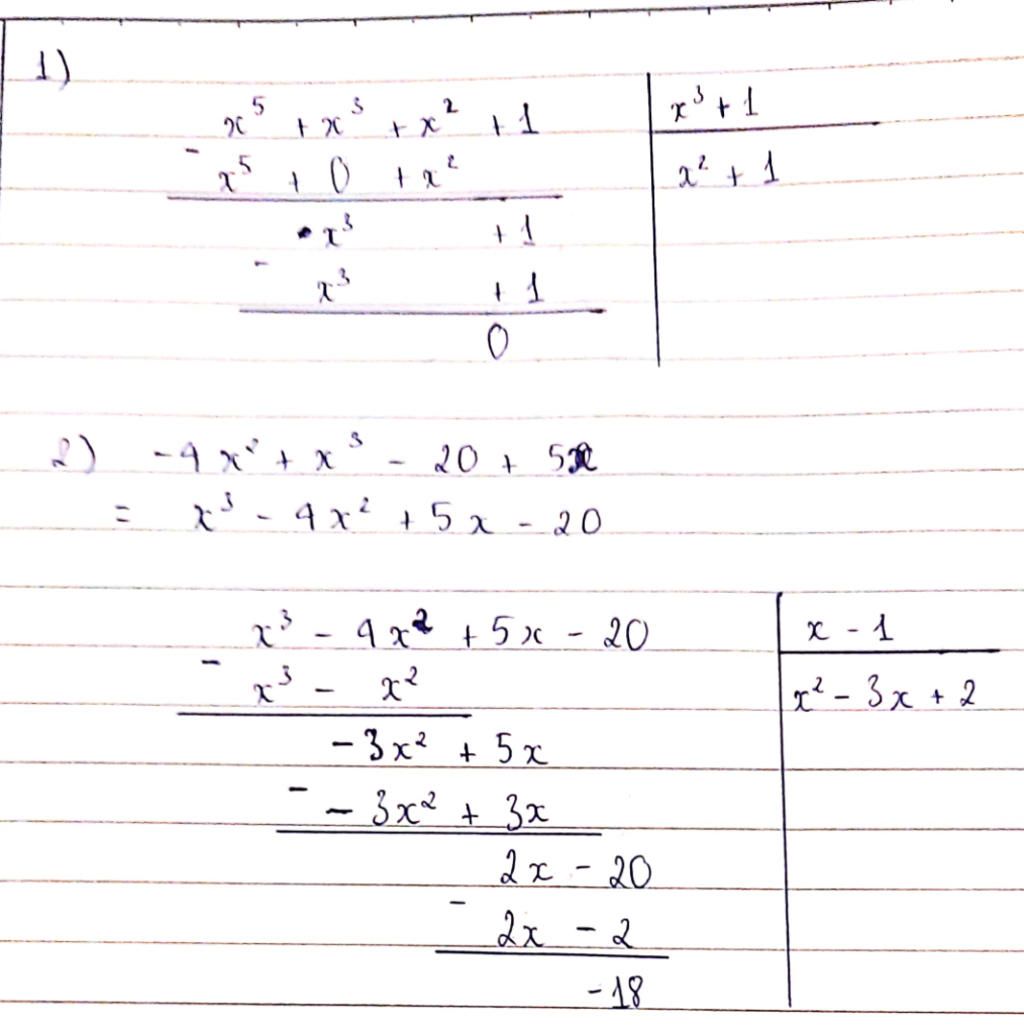 1)
x⁵ + x³ + x² + 1 | x³ + 1
- x⁵ + 0 + x² | x² + 1
x³ + 1
- x³ + 1
0
2) -4x² + x³ - 20 + 5x
= x³ - 4x² + 5x - 20
x³ - 4x² + 5x - 20 | x - 1
- x³ - x² | x² - 3x + 2
-3x² + 5x
- -3x² + 3x
2x - 20
- 2x - 2
-18